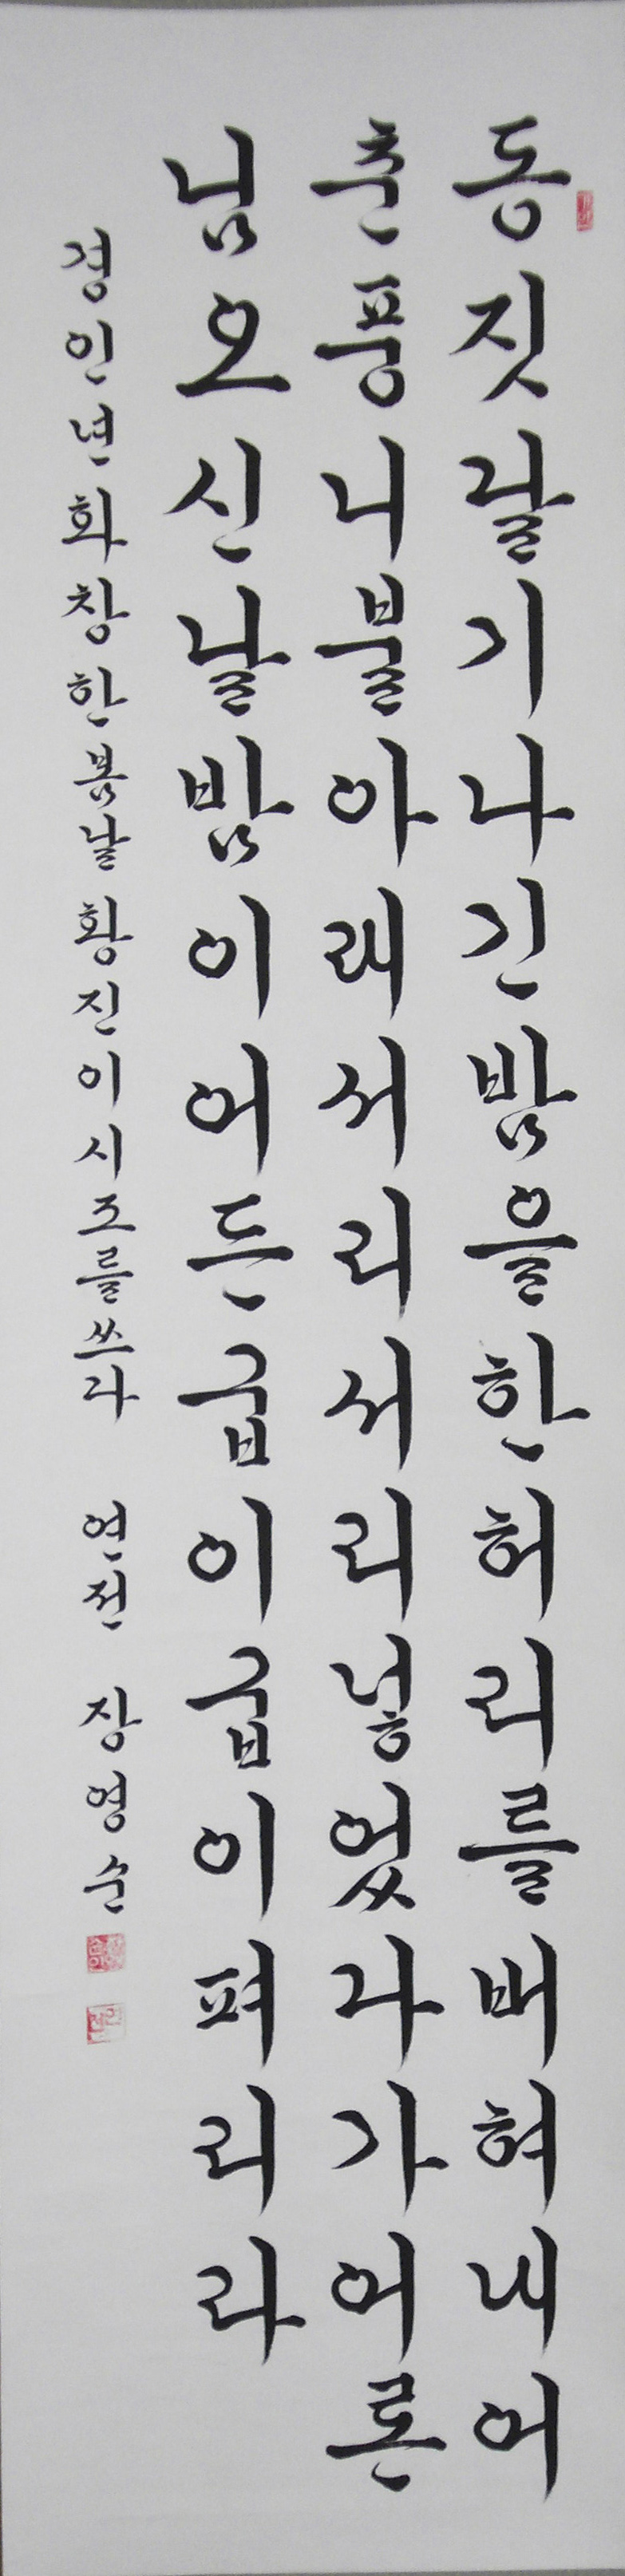 동짓달기나긴밤을한허리를버혀내어
춘풍니불아래서리서리넣었다가어론
님오신날밤이어든굽이굽이펴리라
경인년화창한봄날황진이시조를쓰다 연전 장영순